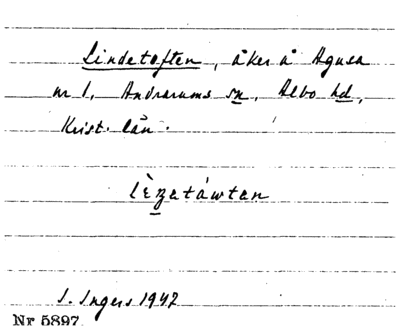 Lindetoften, åker å Agusa
nr 1, Andrarums sn, Albo hd,
Krist. län.
lèŋatáwtan
I. Ingers 1942
Nr 5897.